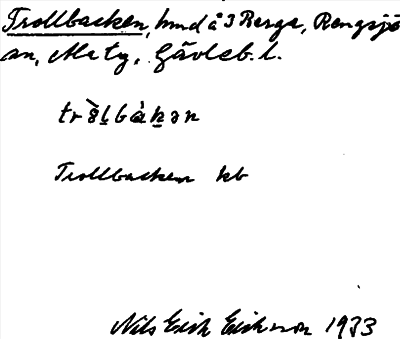 Trollbacken, hmd å 3 Berga, Rengsjö
sn, Gävleb. l.
Trollbacken kb
Nils Erik Eriksson 1933